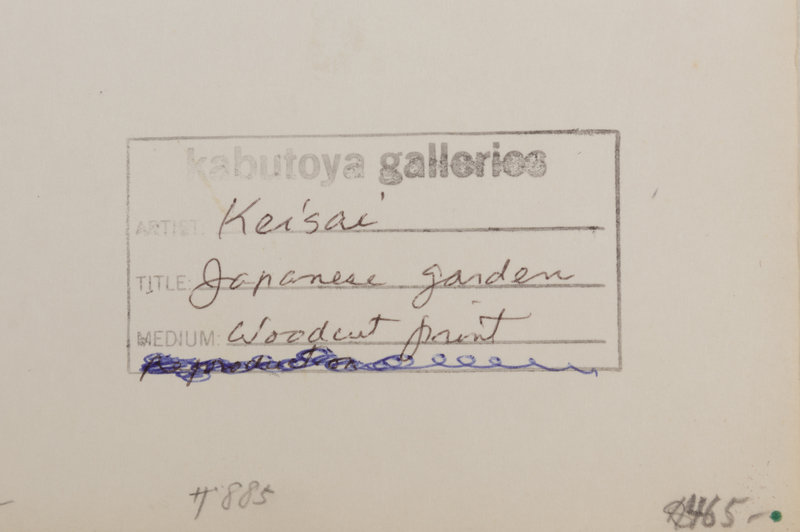 kabutoya galleries
ARTIST: Keisai
TITLE: Japanese garden
MEDIUM: Woodcut print
Reproduction
#885
$465-